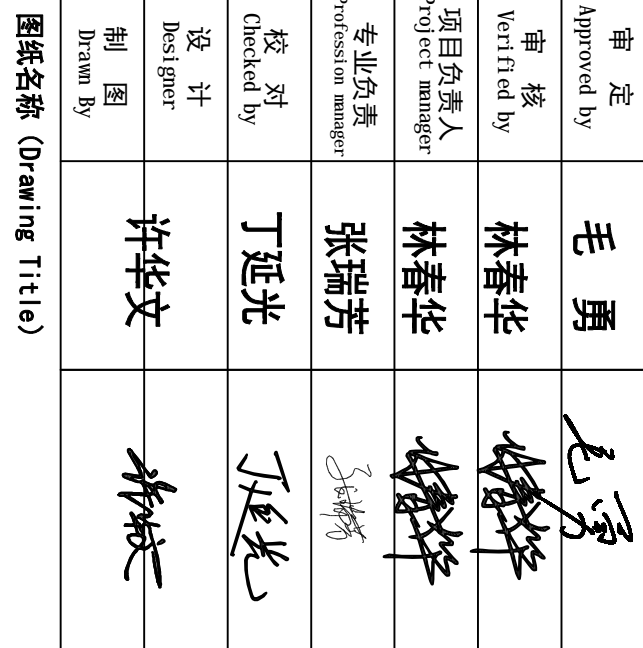 审 定
Approved by
毛 勇
毛勇
审 核
Verified by
林春华
林春华
项目负责人
Project manager
林春华
林春华
专业负责
Profession manager
张瑞芳
张瑞芳
校 对
Checked by
丁延光
丁延光
设 计
Designer
制 图
Drawn By
许华文
许华文
图纸名称 (Drawing Title)